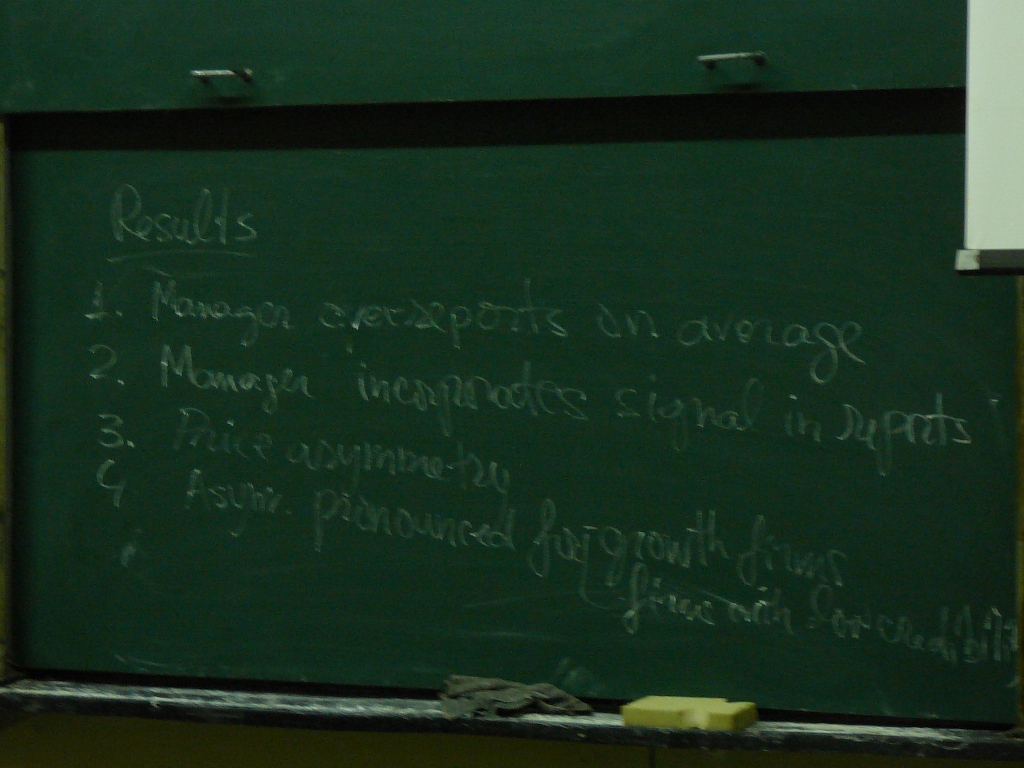 Results
1. Manager overreports on average
2. Manager incorporates signal in reports
3. Price asymmetry
4 Asym. pronounced for growth firms
firms with low credibility